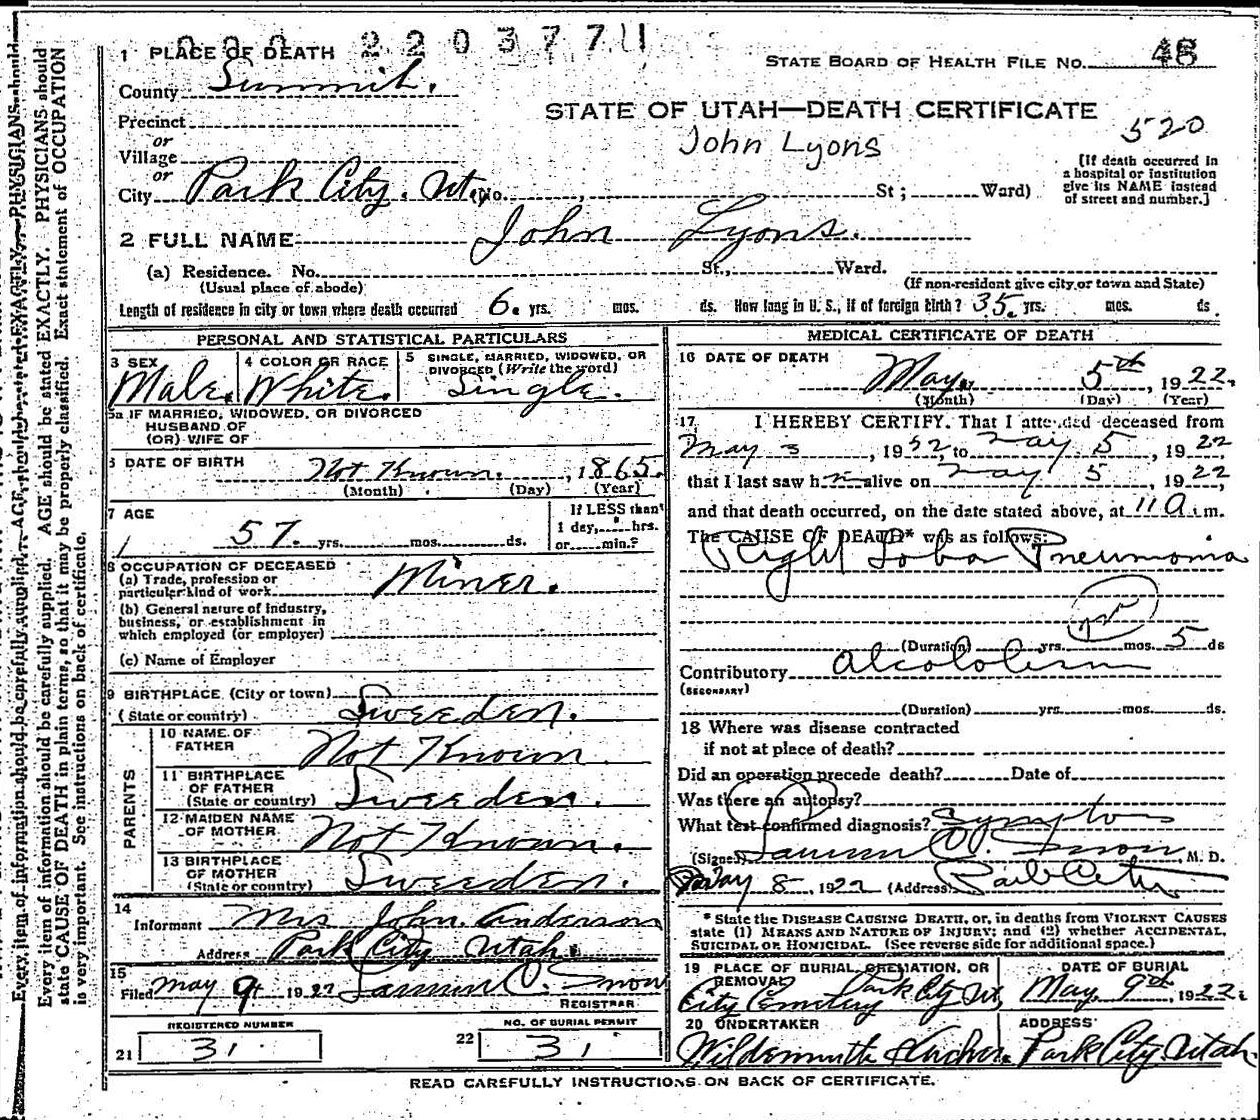 220377
1 PLACE OF DEATH
STATE BOARD OF HEALTH FILE NO. 48
County Summit.
STATE OF UTAH—DEATH CERTIFICATE
Precinct
520
or
John Lyons
Village
or
[If death occurred in
a hospital or institution
give its NAME instead
of street and number.]
City Park City. Ut. No. St; Ward)
2 FULL NAME John Lyons.
(a) Residence. No. St., Ward.
(Usual place of abode)
(If non-resident give city or town and State)
Length of residence in city or town where death occurred 6. yrs. mos. ds. How long in U. S., if of foreign birth? 35. yrs. mos. ds.
PERSONAL AND STATISTICAL PARTICULARS
3 SEX
Male.
4 COLOR OR RACE
White.
5 SINGLE, MARRIED, WIDOWED, OR
DIVORCED (Write the word)
Single.
5a IF MARRIED, WIDOWED, OR DIVORCED
HUSBAND OF
(OR) WIFE OF
6 DATE OF BIRTH Not Known. , 1865.
(Month) (Day) (Year)
7 AGE
57. yrs. mos. ds.
If LESS than
1 day, hrs.
or min.?
8 OCCUPATION OF DECEASED
(a) Trade, profession or
particular kind of work Miner.
(b) General nature of Industry,
business, or establishment in
which employed (or employer)
(c) Name of Employer
9 BIRTHPLACE (City or town)
(State or country) Sweeden.
PARENTS
10 NAME OF
FATHER Not Known
11 BIRTHPLACE
OF FATHER
(State or country) Sweeden.
12 MAIDEN NAME
OF MOTHER Not Known.
13 BIRTHPLACE
OF MOTHER
(State or country) Sweeden.
14
Informant Mrs John Anderson
Address Park City Utah.
15
Filed May 9 1922
REGISTRAR
REGISTERED NUMBER
21 31
NO. OF BURIAL PERMIT
22 31
MEDICAL CERTIFICATE OF DEATH
16 DATE OF DEATH
May 5th , 1922.
(Month) (Day) (Year)
17 I HEREBY CERTIFY. That I attended deceased from
May 3 , 1922 to May 5 , 1922
that I last saw h alive on May 5 , 1922,
and that death occurred, on the date stated above, at 11 a. m.
The CAUSE OF DEATH* was as follows:
Right Loba Pneumonia
(Duration) yrs. mos. 5 ds
Contributory
(SECONDARY)
(Duration) yrs. mos. ds.
18 Where was disease contracted
if not at place of death?
Did an operation precede death? Date of
Was there an autopsy?
What test confirmed diagnosis? Symptoms
(Signed) , M. D.
May 8, 1922 (Address) Park City
* State the DISEASE CAUSING DEATH, or, in deaths from VIOLENT CAUSES
state (1) MEANS AND NATURE OF INJURY; and (2) whether ACCIDENTAL,
SUICIDAL OR HOMICIDAL. (See reverse side for additional space.)
19 PLACE OF BURIAL, CREMATION, OR
REMOVAL
City Cemetery Park City Ut.
DATE OF BURIAL
May. 9th, 1922.
20 UNDERTAKER
ADDRESS
Park City Utah
READ CAREFULLY INSTRUCTIONS ON BACK OF CERTIFICATE.
Every item of information should be carefully supplied. AGE should be stated EXACTLY. PHYSICIANS should
state CAUSE OF DEATH in plain terms, so that it may be properly classified. Exact statement of OCCUPATION
is very important. See instructions on back of certificate.